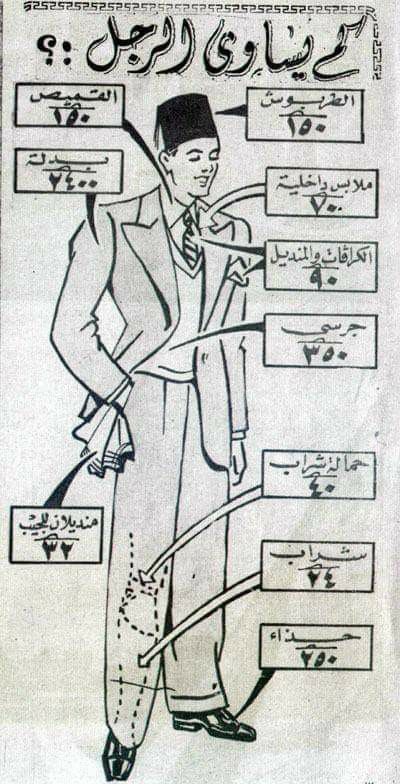 كم يساوى الرجل :؟
الطربوش
١٥٠
القميص
١٥٠
بدلة
٢٤٠٠
ملابس داخلية
٧٠
الكرافات والمنديل
٩٠
جرسى
٣٥٠
حمالة شراب
٤٠
منديلان للجيب
٣٢
شراب
٢٤
حذاء
٢٥٠